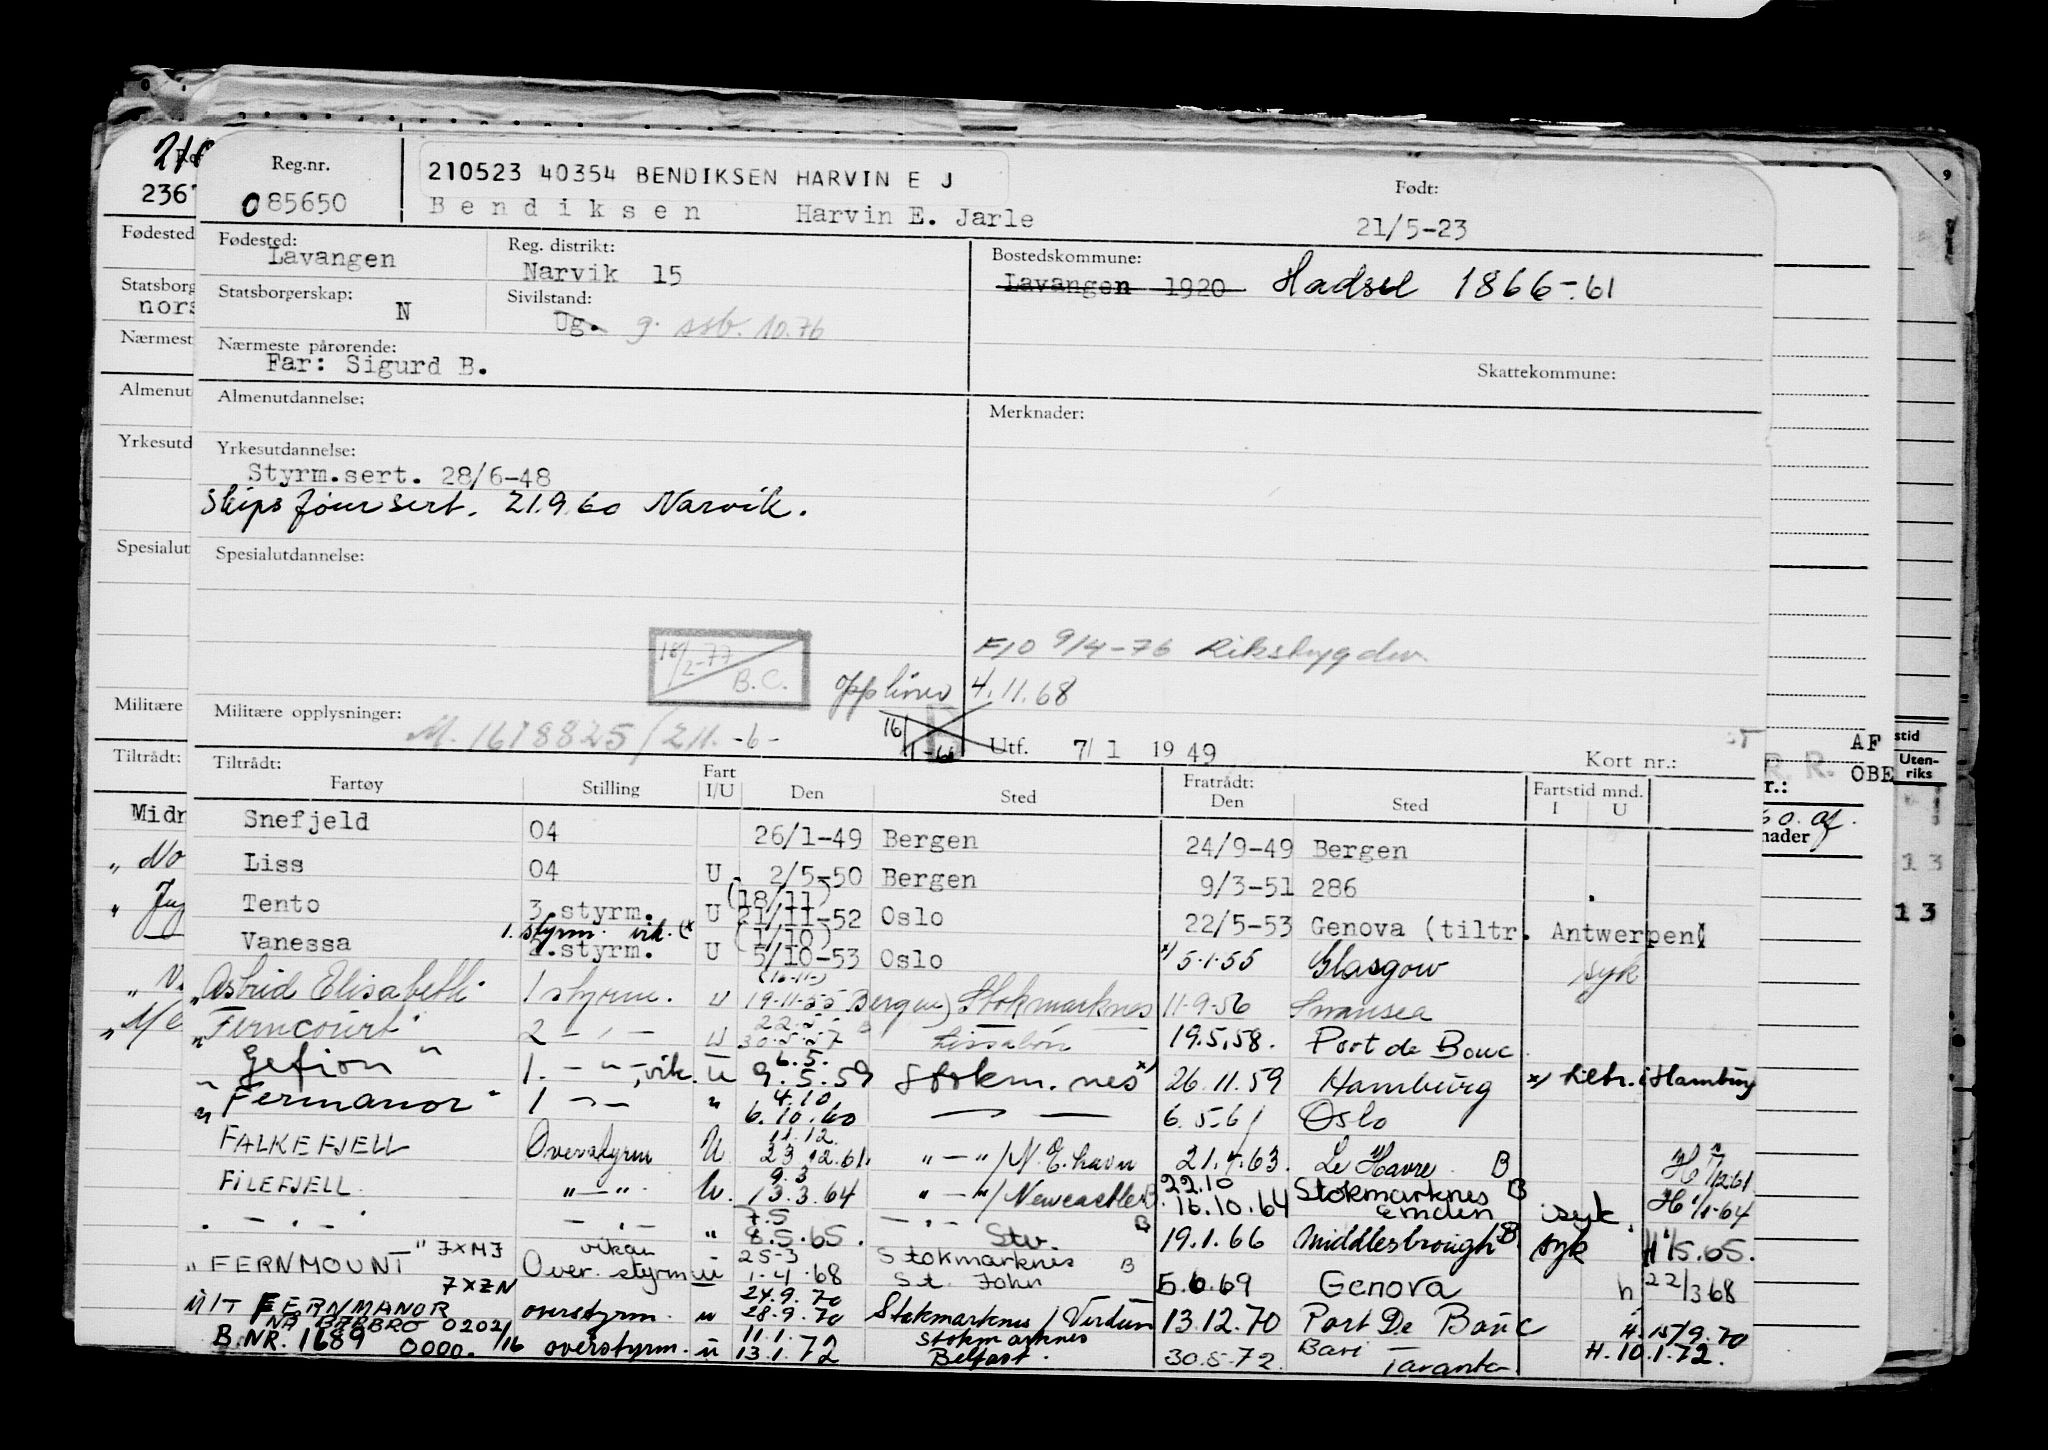 Reg.nr.
085650
210523 40354 BENDIKSEN HARVIN E J
Bendiksen Harvin E. Jarle
Født:
21/5-23
2367
Fødested
Statsborg
nors
Nærmest
Almenut
Yrkesutd
Spesialut
Militære
Tiltrådt:
Midn
Fødested:
Lavangen
Reg. distrikt:
Narvik 15
Bostedskommune:
Lavangen 1920 Hadsel 1866-61
Statsborgerskap:
N
Sivilstand:
Ug. g. ssb. 10.76
Nærmeste pårørende:
Far: Sigurd B.
Skattekommune:
Almenutdannelse:
Merknader:
Yrkesutdannelse:
Styrm.sert. 28/6-48
Skipsførersert. 21.9.60 Narvik.
Spesialutdannelse:
18/2-77
B.C.
F/O 9/4-76 Rikstrygdev.
4.11.68
Militære opplysninger:
M. 1618825/211. -6-
16/1-61
Utf. 7/1 1949
Kort nr.:
AF
OBE
R. R.
stid
Uten-
riks
13
13
Tiltrådt:
Fartøy Stilling Fart I/U Den Sted Fratrådt: Den Sted Fartstid mnd. I U
Snefjeld 04 26/1-49 Bergen 24/9-49 Bergen
Liss 04 U 2/5-50 Bergen 9/3-51 286
(18/11)
Tento 3. styrm. U 21/11-52 Oslo 22/5-53 Genova (tiltr. Antwerpen)
1. styrm. vik. (x (1/10)
Vanessa 2.styrm. U 5/10-53 Oslo x) 5.1.55 Glasgow syk
(16-11-)
"Astrid Elisabeth" 1 styrm. U 19-11-55 Bergen) Stokmarknes 11-9-56 Swansea
22.5-
"Ferncourt" 2 - " - U 30.5.57 B Lissabon 19.5.58. Port de Bouc
6.5.
"Gefion" 1. - " -, vik. U 9.5.59 Stokm.nes x) 26.11.59 Hamburg x) tiltr. i Hamburg
4.10
"Fernmanor" 1 - " - " 6.10.60 - " - 6.5-61 Oslo
11.12.
FALKEFJELL Overstyrm U 23.12.61. " - " / N.E. havn 21.4.63. Le Havre B H 7/12 61
9.3 22.10
FILEFJELL. " - ". U. 13.3.64 " - " / Newcastle B 16.10.64 Stokmarknes B Emden syk. H 1/1-64
7.5
" - " - " - " - " 8.5.65. - " - Stv. B 19.1.66 Middlesbrough B. syk H 1/5.65.
"FERNMOUNT" JXMJ vikar Over. styrm u 25-3 1.4.68 Stokmarknes St. John B 5.6.69 Genova h 22/3 68
JXZN 24.9.70
M/T FERNMANOR overstyrm. u 28.9.70 Stokmarknes / Verdun 13.12.70 Port De Bouc H. 15/9.70
NÅ BARBRO 0202/16 11.1. Stokmarknes Bari
B.NR. 1689 0000. overstyrm. u 13.1.72 Belfast. 30.5.72. Taranto H. 10.1.72.